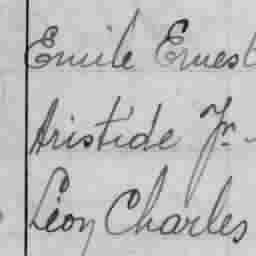 Emile Ernest
Aristide Jr.
Léon Charles